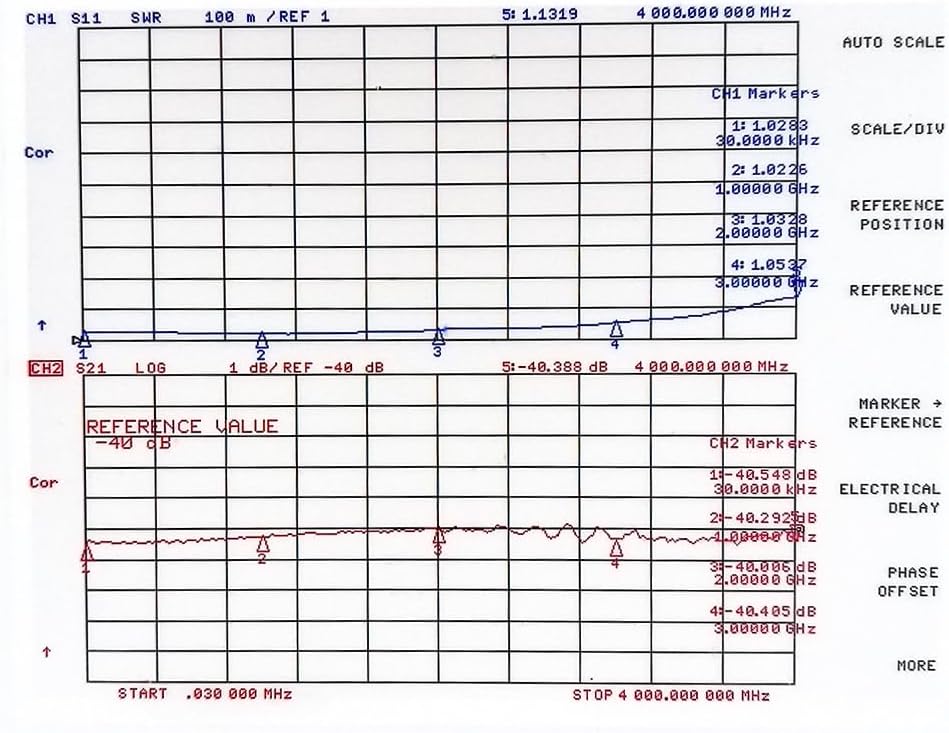 CH1 S11 SWR 100 m / REF 1 5: 1.1319 4 000.000 000 MHz
AUTO SCALE
CH1 Markers
1: 1.0283
30.0000 kHz
Cor
SCALE/DIV
2: 1.0226
1.00000 GHz
REFERENCE
POSITION
3: 1.0328
2.00000 GHz
4: 1.0537
3.00000 GHz
REFERENCE
VALUE
↑
1 2 3 4
CH2 S21 LOG 1 dB/ REF -40 dB 5:-40.388 dB 4 000.000 000 MHz
REFERENCE VALUE
-40 dB
MARKER →
REFERENCE
CH2 Markers
1:-40.548 dB
30.0000 kHz
Cor
ELECTRICAL
DELAY
2:-40.292 dB
1.00000 GHz
1 2 3 4
3:-40.006 dB
2.00000 GHz
PHASE
OFFSET
4:-40.405 dB
3.00000 GHz
↑
MORE
START .030 000 MHz STOP 4 000.000 000 MHz